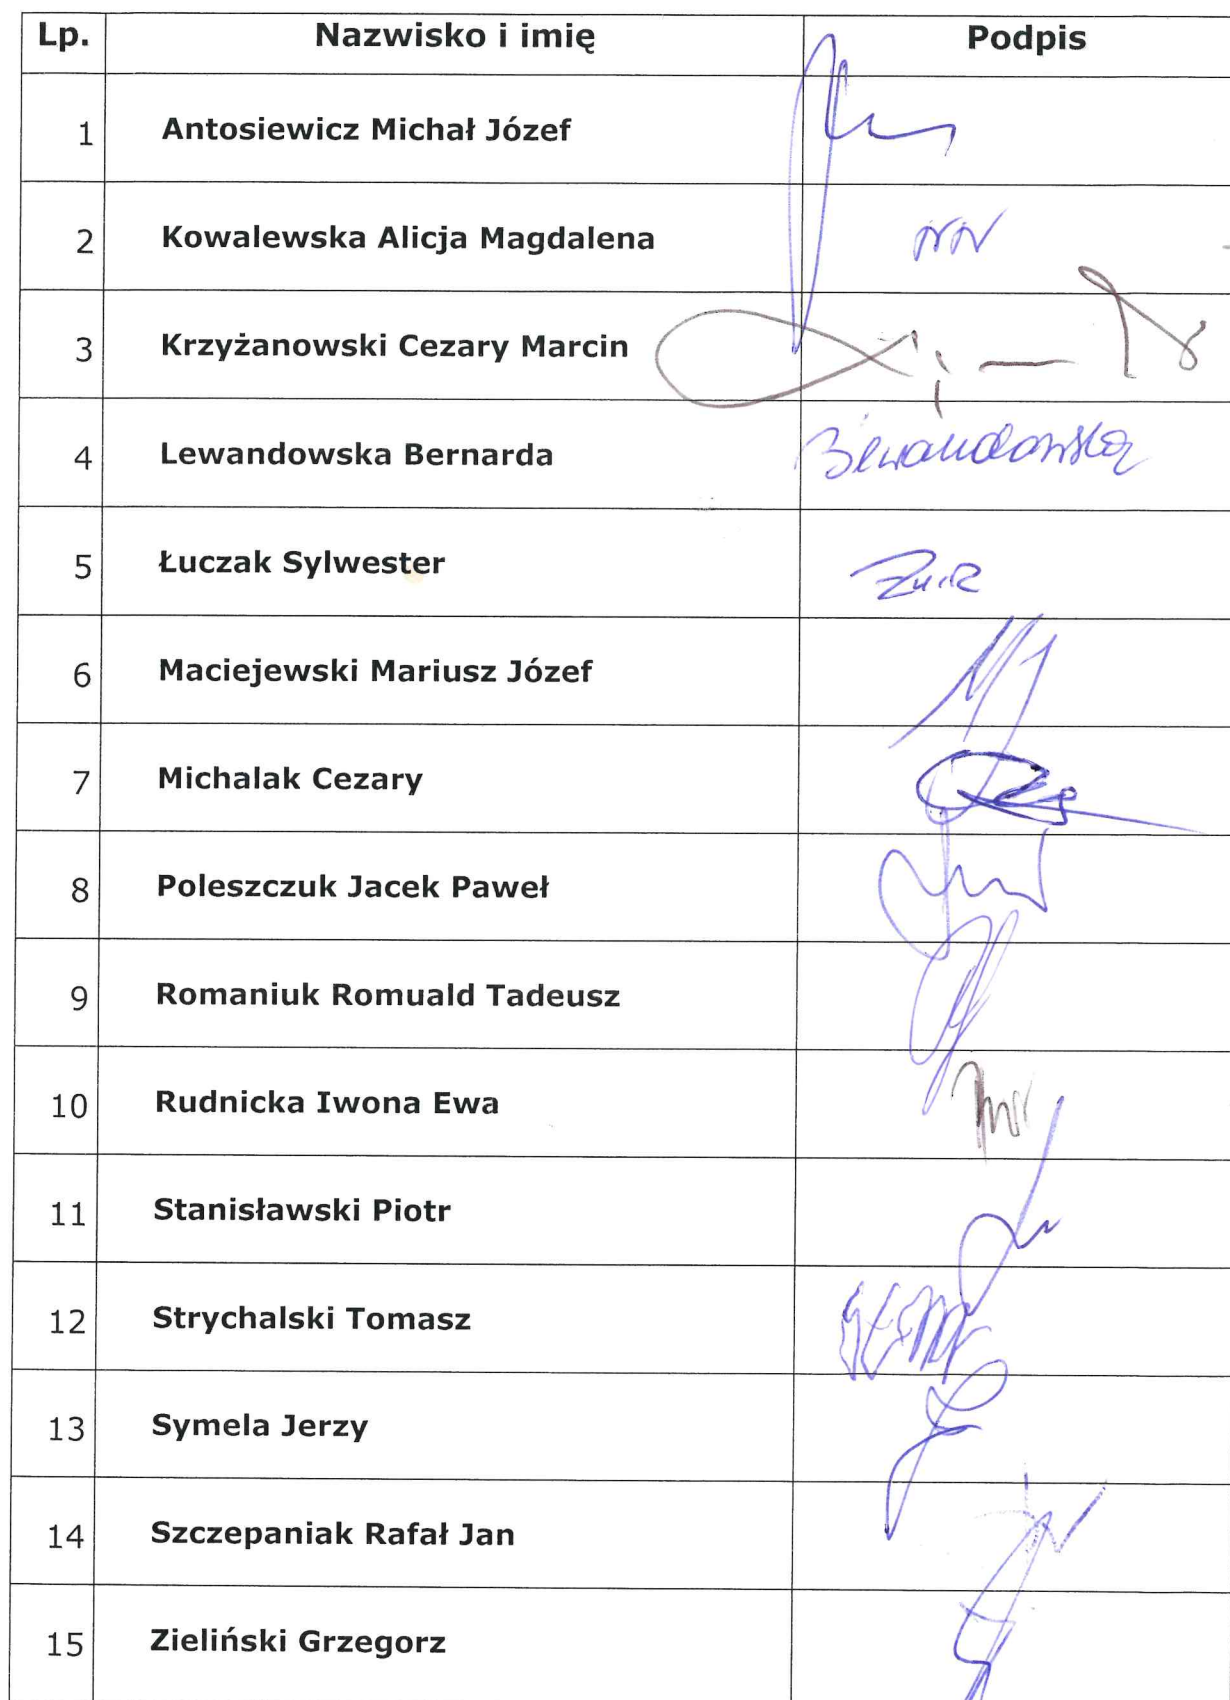 Lp. Nazwisko i imię Podpis
1 Antosiewicz Michał Józef
2 Kowalewska Alicja Magdalena
3 Krzyżanowski Cezary Marcin
4 Lewandowska Bernarda BLewandowska
5 Łuczak Sylwester
6 Maciejewski Mariusz Józef
7 Michalak Cezary
8 Poleszczuk Jacek Paweł
9 Romaniuk Romuald Tadeusz
10 Rudnicka Iwona Ewa
11 Stanisławski Piotr
12 Strychalski Tomasz
13 Symela Jerzy
14 Szczepaniak Rafał Jan
15 Zieliński Grzegorz